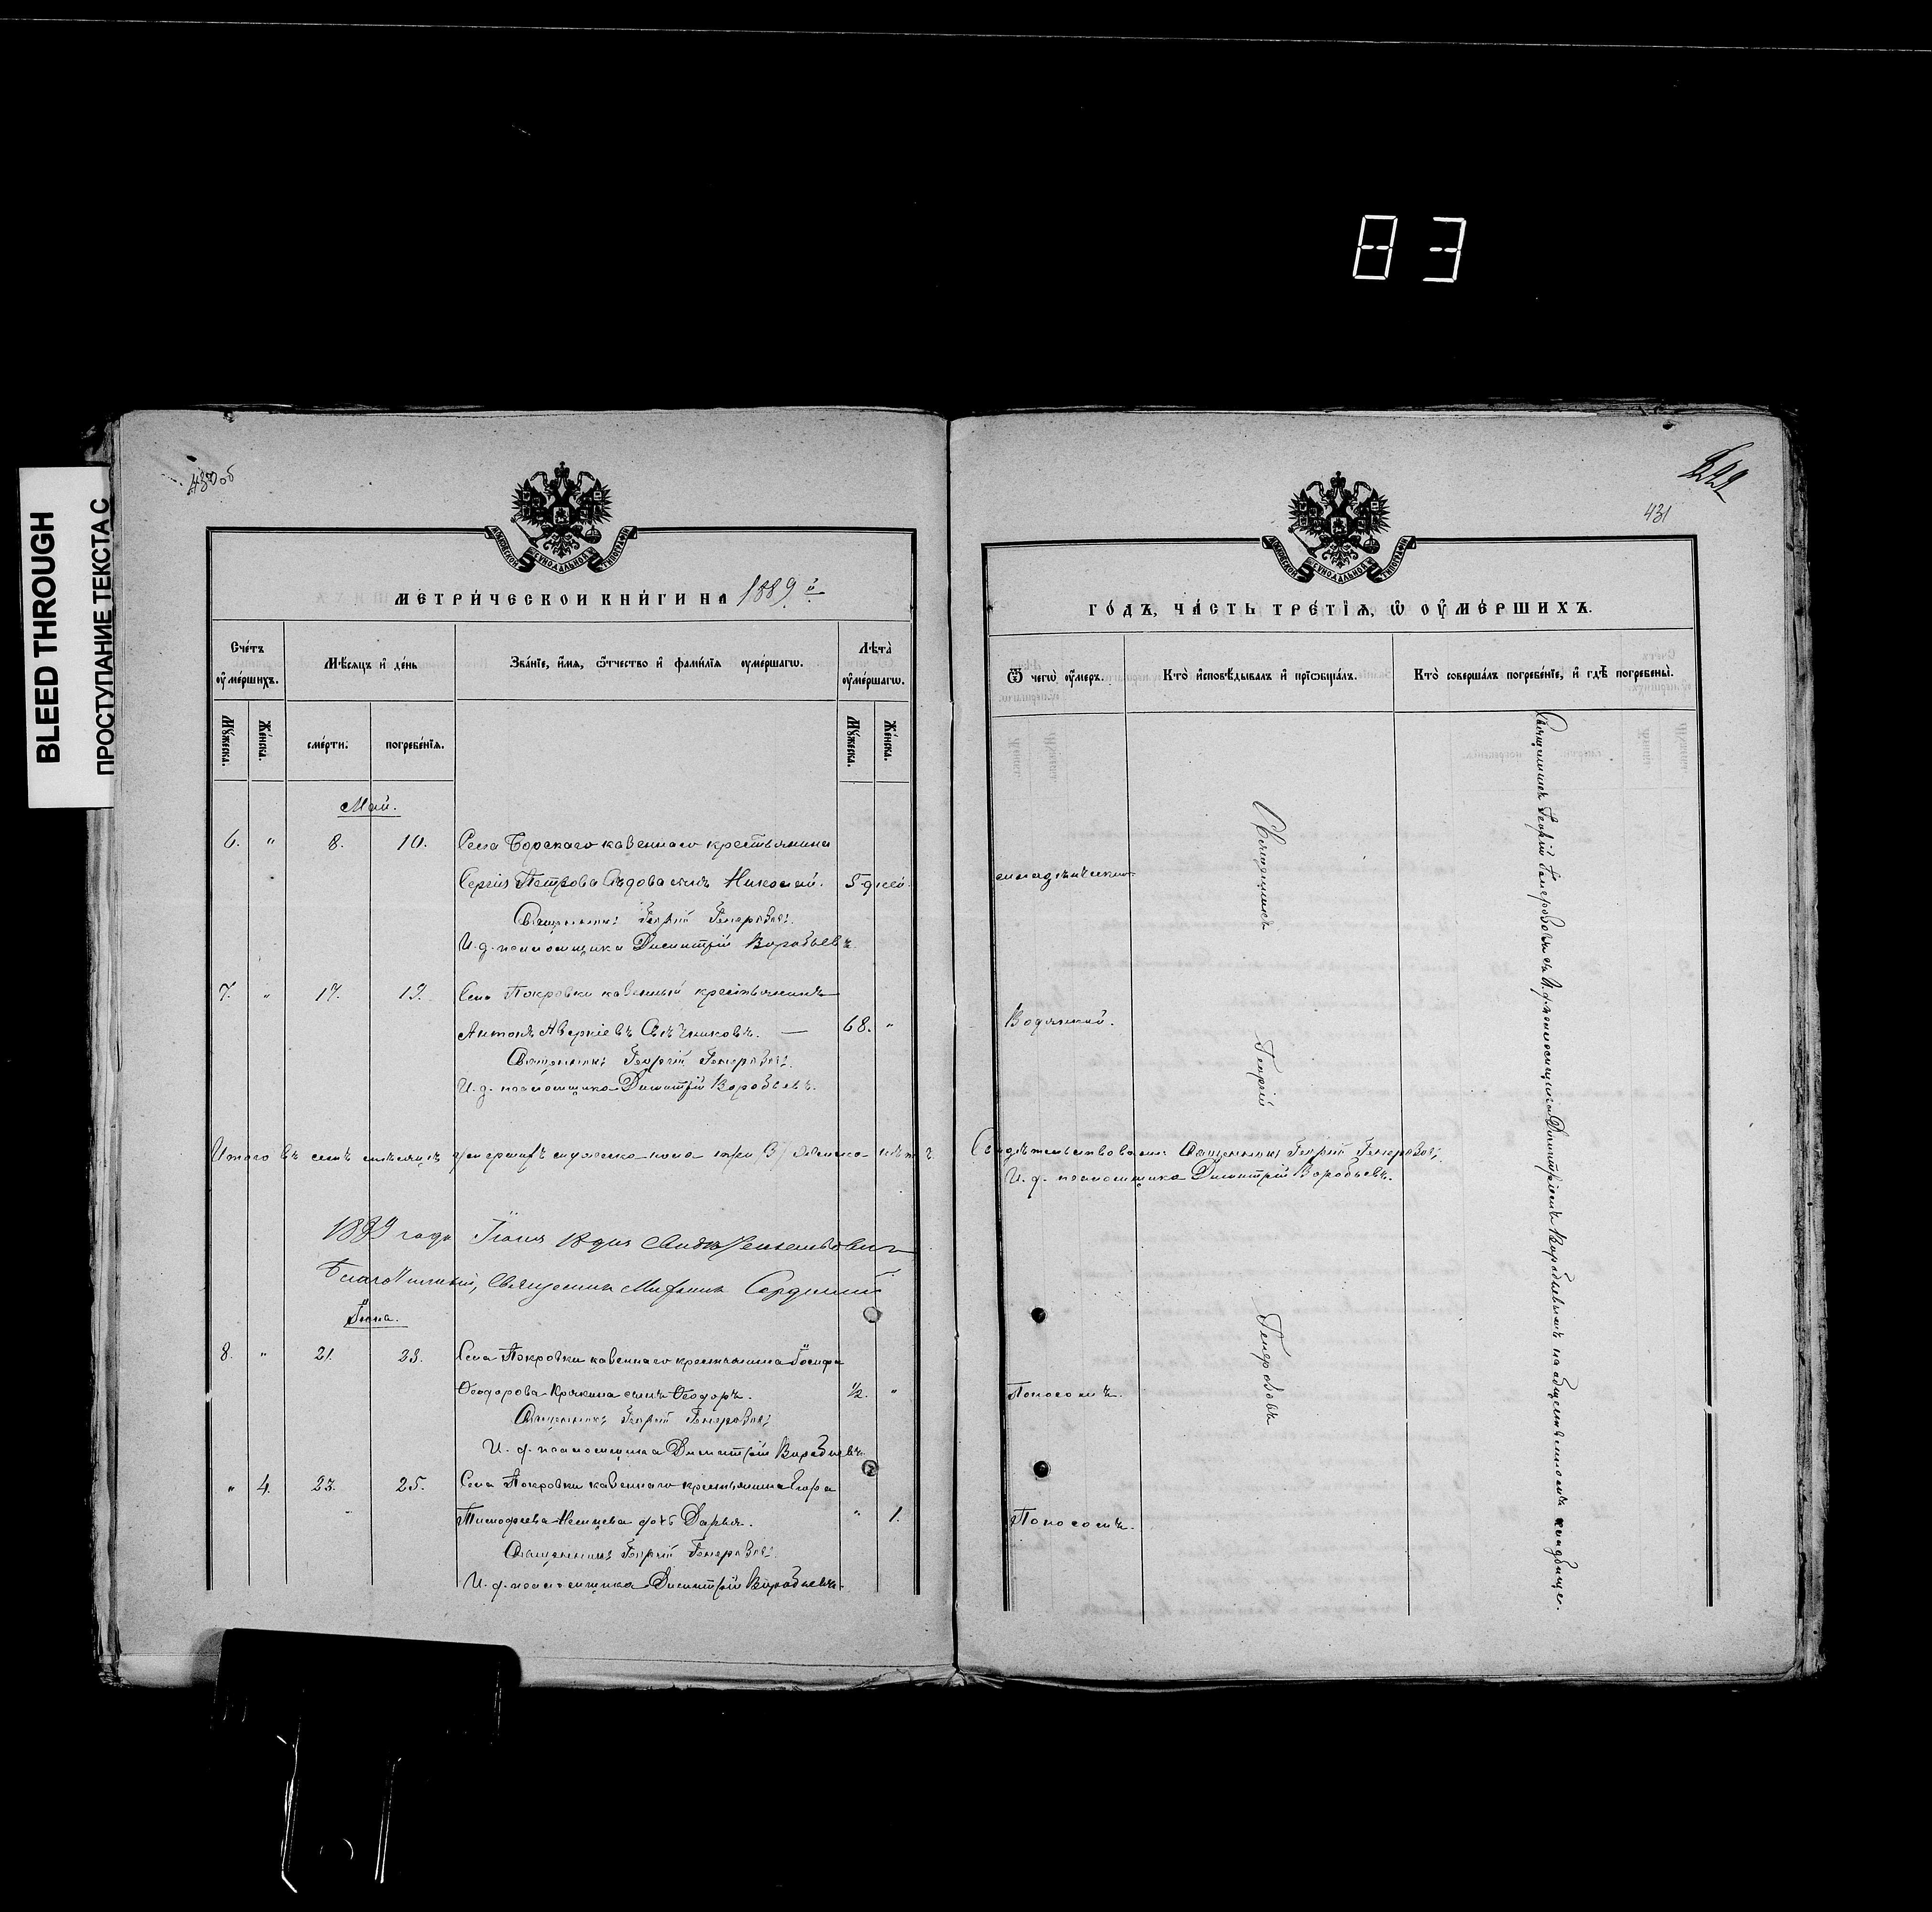 83
BLEED THROUGH
ПРОСТУПАНИЕ ТЕКСТА С
430 об
МЕТРИЧЕСКОЙ КНИГИ НА 1889 й
Счетъ умершихъ.
Мѣсяцъ и день
Званіе, имя, отчество и фамилія умершагѡ.
Лѣта умершагѡ.
Мужеска.
Женска.
смерти.
погребенія.
Мужеска.
Женска.
Май.
6. " 8. 10. Села Борскаго казеннаго крестьянина
Сергія Петрова Сѣдова сынъ Николай. 5 дней.
Священникъ Георгій Генерозовъ.
И. д. псаломщика Димитрій Воробьевъ.
7. " 17. 19. Села Покровки казенный крестьянинъ
Антонъ Аверкіевъ Свѣчниковъ. — 68. "
Священникъ Георгій Генерозовъ.
И. д. псаломщика Димитрій Воробьевъ.
Итого въ семъ мѣсяцѣ умершихъ мужеска пола три (3) женска нѣтъ.
1889 года Іюня 12 дня Свидѣтельствовалъ
Благочинный, Священникъ
Іюнь.
8. " 21. 23. Села Покровки казеннаго крестьянина Іосифа
Ѳеодорова Крякина сынъ Ѳеодоръ. ½. "
Священникъ Георгій Генерозовъ.
И. д. псаломщика Димитрій Воробьевъ.
" 4. 23. 25. Села Покровки казеннаго крестьянина Егора
Тимофеева Немцева дочь Дарья. " 1.
Священникъ Георгій Генерозовъ.
И. д. псаломщика Димитрій Воробьевъ.
431
ГОДЪ, ЧАСТЬ ТРЕТІЯ, Ѡ УМЕРШИХЪ.
Ѿ чегѡ умеръ.
Кто исповѣдывалъ и пріобщалъ.
Кто совершалъ погребеніе, и гдѣ погребены.
младенческою.
Водянкой.
Свидѣтельствовали: Священникъ Георгій Генерозовъ.
И. д. псаломщика Димитрій Воробьевъ.
Поносомъ.
Поносомъ.
Священникъ Георгій Генерозовъ
Священникъ Георгій Генерозовъ съ И. д. псаломщика Димитріемъ Воробьевымъ на общественномъ кладбище.